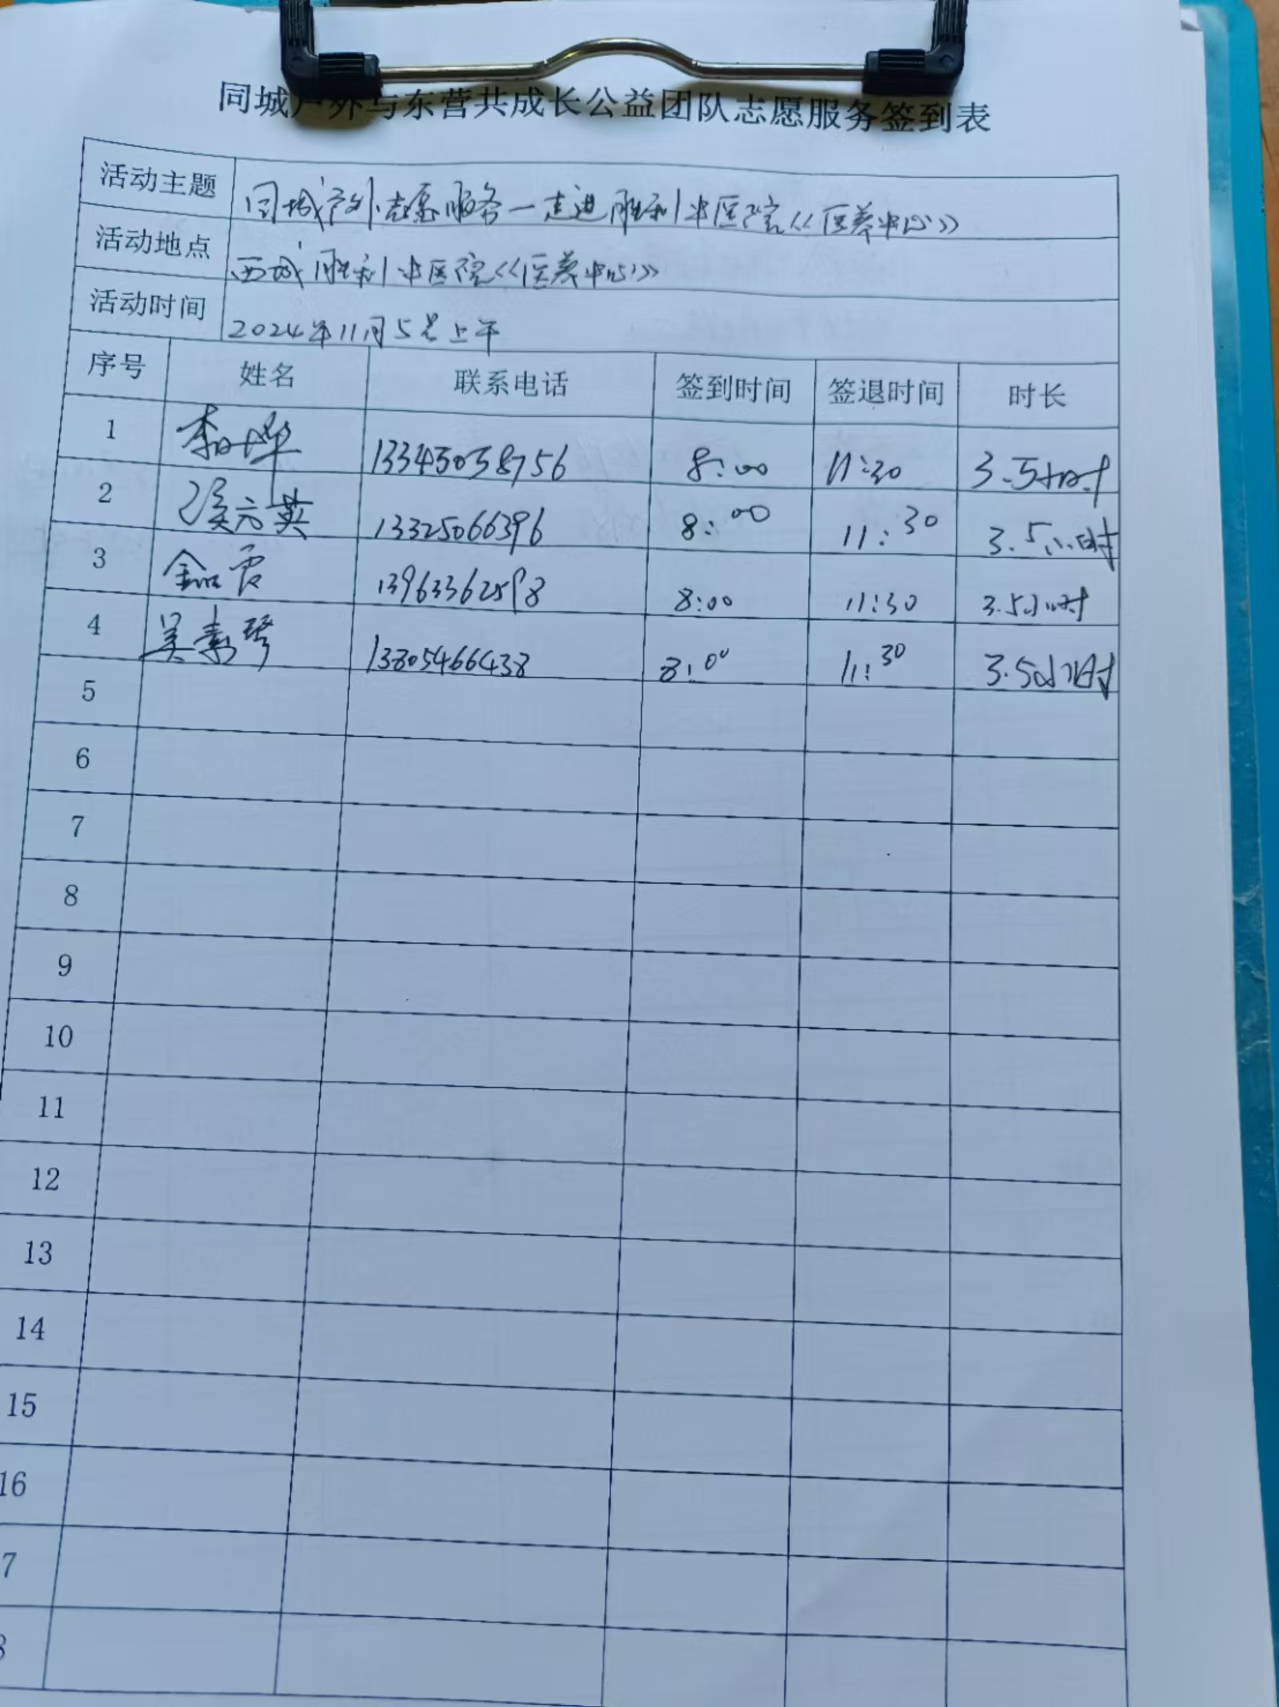 同城户外与东营共成长公益团队志愿服务签到表
活动主题 同城户外志愿服务一走进胜利中医院《医养中心》
活动地点 西城胜利中医院《医养中心》
活动时间 2024年11月5号上午
序号 姓名 联系电话 签到时间 签退时间 时长
1 13345058756 8:00 11:30 3.5小时
2 13325066396 8:00 11:30 3.5小时
3 13963362598 8:00 11:30 3.5小时
4 吴素琴 13805466438 8:00 11:30 3.5小时
5
6
7
8
9
10
11
12
13
14
15
16
7
8